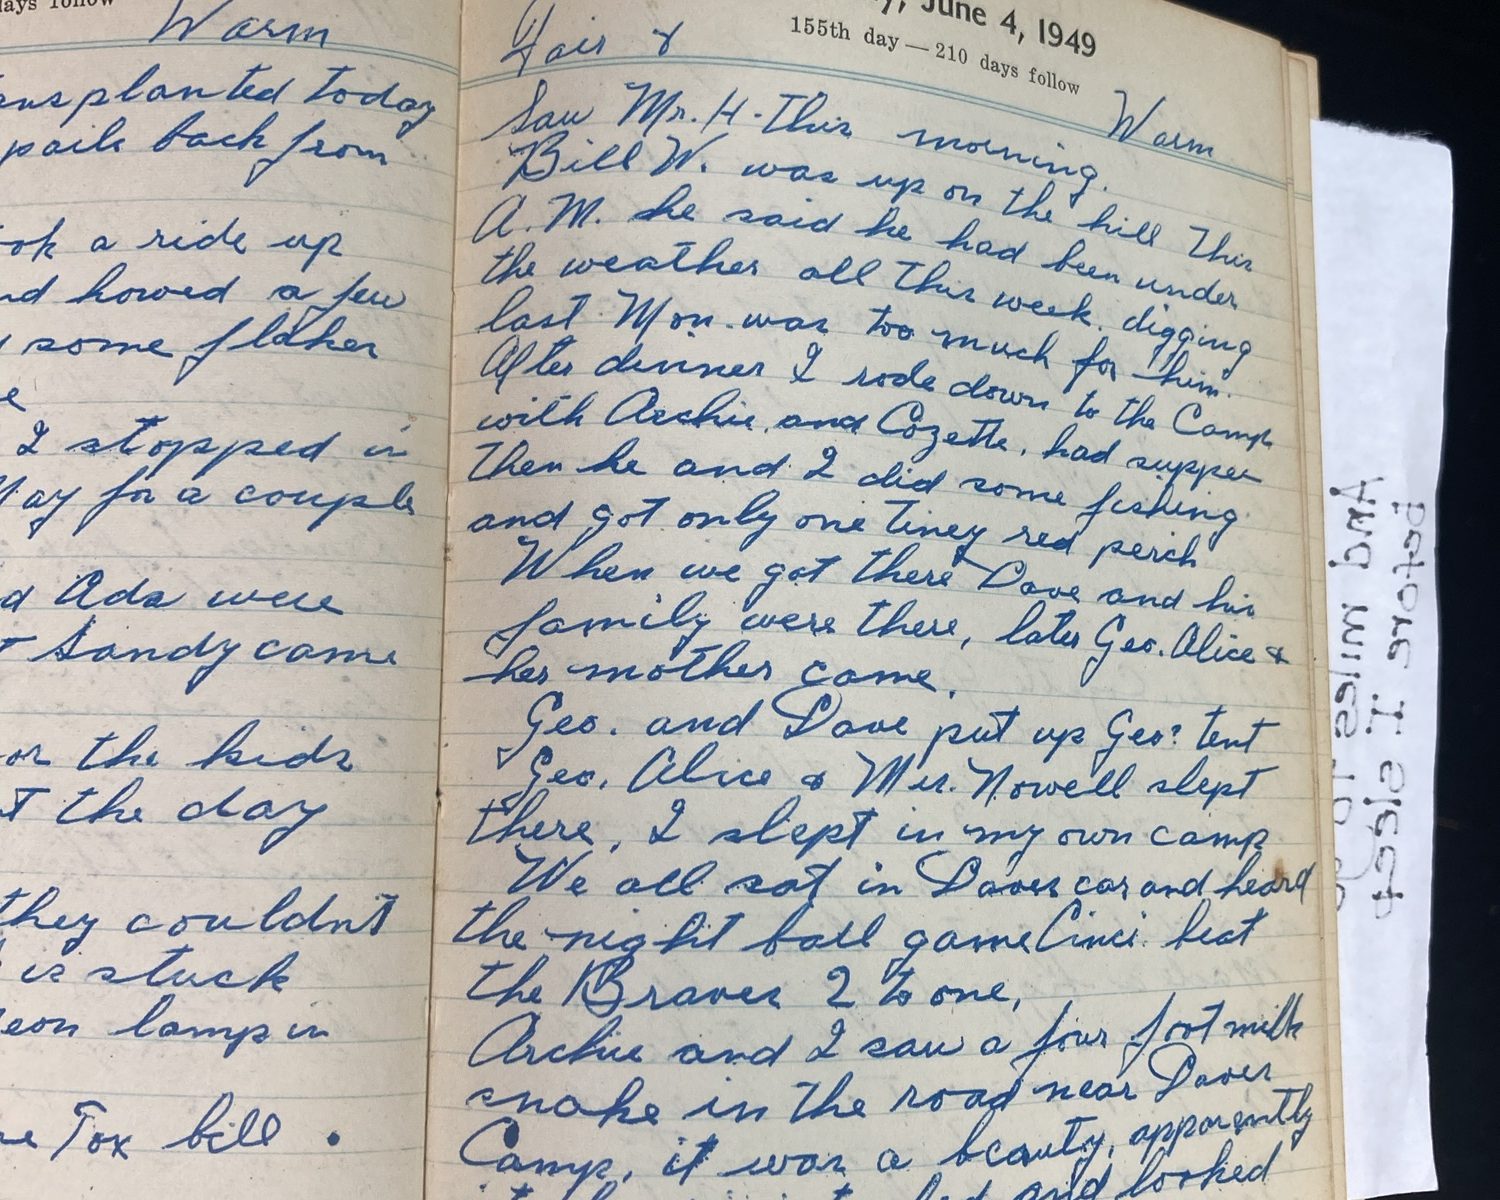 days follow
Warm
ansplanted today
pails back from
ook a ride up
nd howed a few
some flaher
e
I stopped in
May for a couple
d Ada were
t Sandy came
or the kids
t the day
they couldn't
is stuck
eon lamp in
ne Tax bill .
y, June 4, 1949
155th day — 210 days follow
Fair & Warm
Saw Mr. H. this morning.
Bill W. was up on the hill this
A.M. he said he had been under
the weather all this week. digging
last Mon. was too much for him.
After dinner I rode down to the Camp
with Archie and Cozette, had supper
then he and I did some fishing
and got only one tiney red perch
When we got there Dave and his
family were there, later Geo. Alice &
her mother came.
Geo. and Dave put up Geo's tent
Geo. Alice & Mrs. Nowell slept
there, I slept in my own camp
We all sat in Daves car and heard
the night ball game Cinci. beat
the Braves 2 to one,
Archie and I saw a four foot milk
snake in the road near Daves
Camp, it was a beauty, apparently
and looked
And miles to go
before I sleep